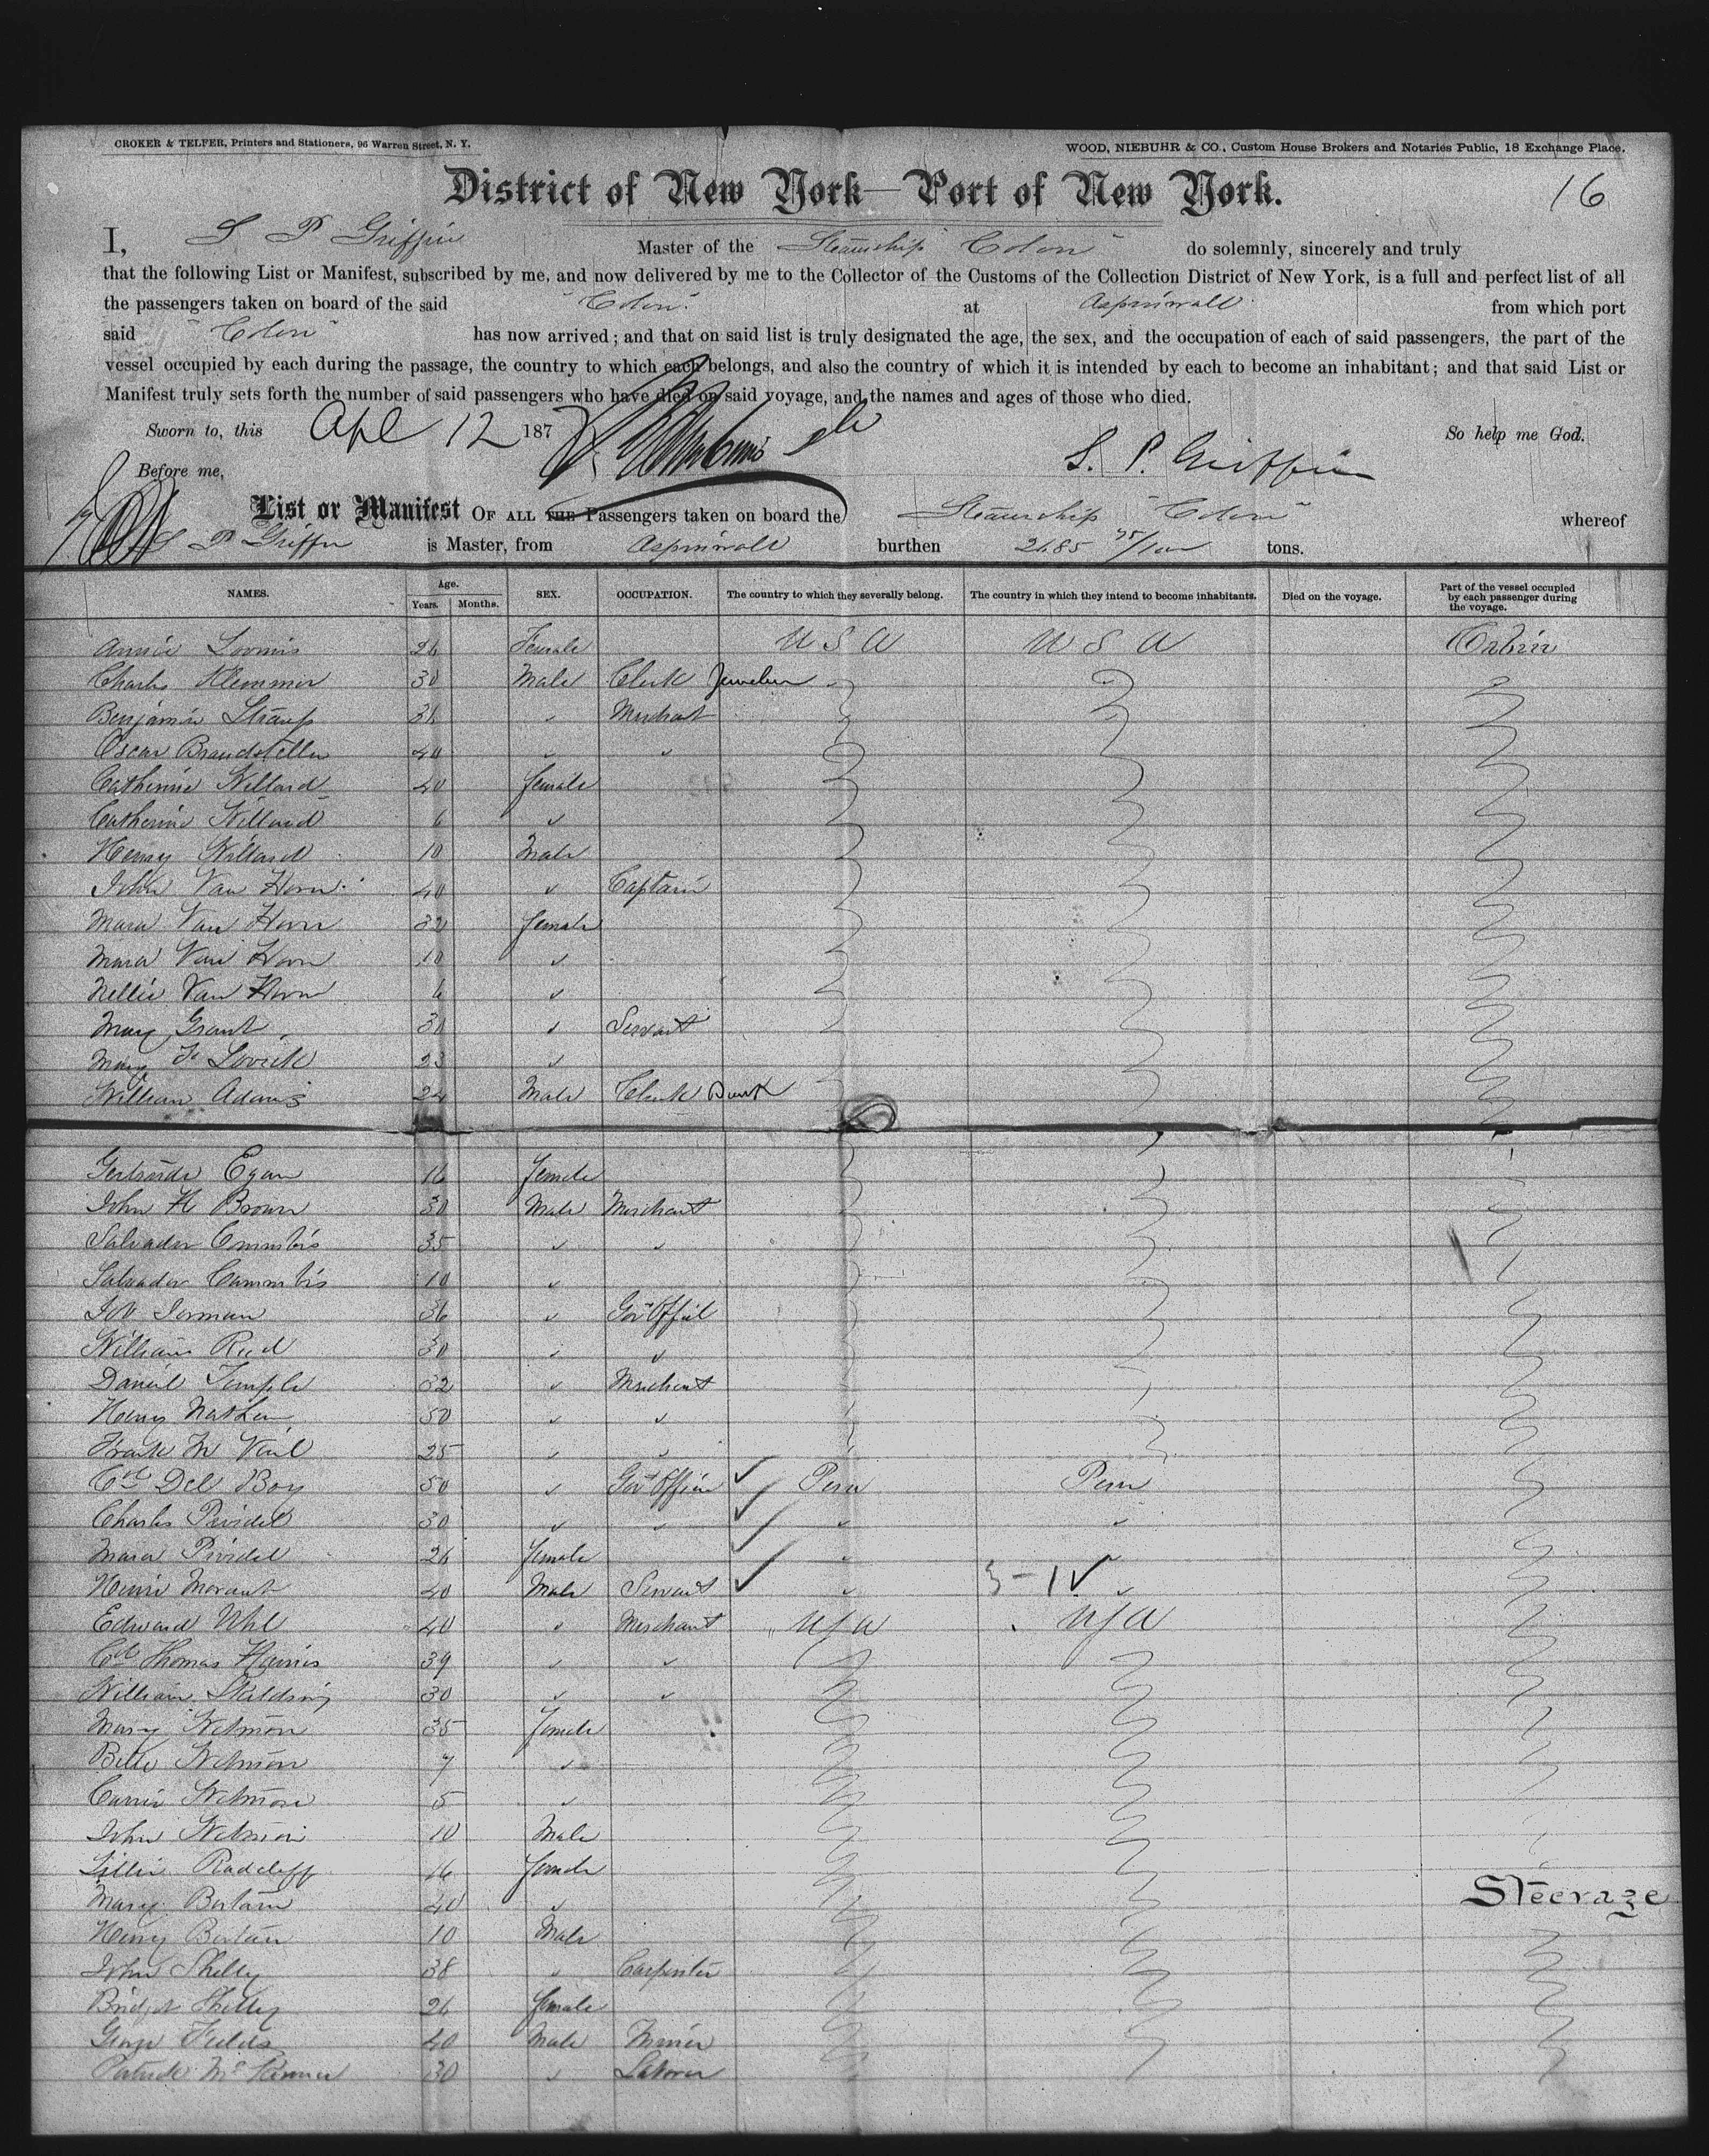 CROKER & TELFER, Printers and Stationers, 96 Warren Street, N. Y.
WOOD, NIEBUHR & CO., Custom House Brokers and Notaries Public, 18 Exchange Place.
District of New York—Port of New York.
16
I, S P Griffin Master of the Steamship "Colon" do solemnly, sincerely and truly
that the following List or Manifest, subscribed by me, and now delivered by me to the Collector of the Customs of the Collection District of New York, is a full and perfect list of all
the passengers taken on board of the said "Colon" at Aspinwall from which port
said "Colon" has now arrived; and that on said list is truly designated the age, the sex, and the occupation of each of said passengers, the part of the
vessel occupied by each during the passage, the country to which each belongs, and also the country of which it is intended by each to become an inhabitant; and that said List or
Manifest truly sets forth the number of said passengers who have died on said voyage, and the names and ages of those who died.
Sworn to, this Apl 12 187 So help me God.
Before me, S. P. Griffin
List or Manifest OF ALL THE Passengers taken on board the Steamship "Colon" whereof
S P Griffin is Master, from Aspinwall burthen 2685 tons.
NAMES. Age. Years. Months. SEX. OCCUPATION. The country to which they severally belong. The country in which they intend to become inhabitants. Died on the voyage. Part of the vessel occupied by each passenger during the voyage.
Annie Loomis 26 Female U S A U S A Cabin
Charles Klemmer 30 Male Clerk Jeweler
Benjamin Straup 36 " Merchant
Oscar Brandsteller 40 " "
Catherine Willard 40 female
Catherine Willard 6 "
Henry Willard 10 Male
John Van Horn 40 " Captain
Mara Van Horn 32 female
Mara Van Horn 10 "
Nellie Van Horn 6 "
Mary Grant 30 " Servant
Mary F Lovick 23 "
William Adams 24 Male Clerk Bank
Gertrude Egan 16 female
John H Brown 30 Male Merchant
Salvador 35 " "
Salvador 10 "
36 " Gov Offil
William Reed 30 " "
Daniel Temple 32 " Merchant
Henry Nathan 50 " "
Frank M Vail 25 " "
Col Del Boy 50 " Gov Officer Peru Peru
Charles Prividel 30 " " " "
Mara Prividel 26 female " "
Henri Morant 40 Male Servant " 3-1 "
Edward Uhl 40 " Merchant USA USA
Col Thomas Haines 39 " "
William 30 " "
Mary Wetmore 35 female
Belle Wetmore 7 "
Carrie Wetmore 5 "
John Wetmore 10 Male
Lillie Radcliff 16 female
Mary Bertam 40 " Steerage
Henry Bertam 10 Male
John Shelly 38 " Carpenter
Bridget Shelly 26 female
George Fields 40 Male Miner
Patrick 30 " Laborer